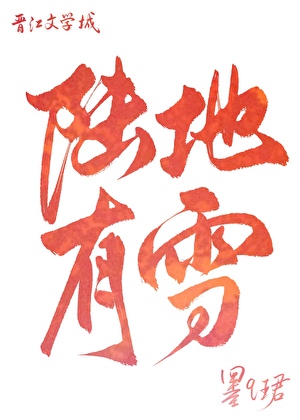 晋江文学城
陆地
有雪
墨9珺